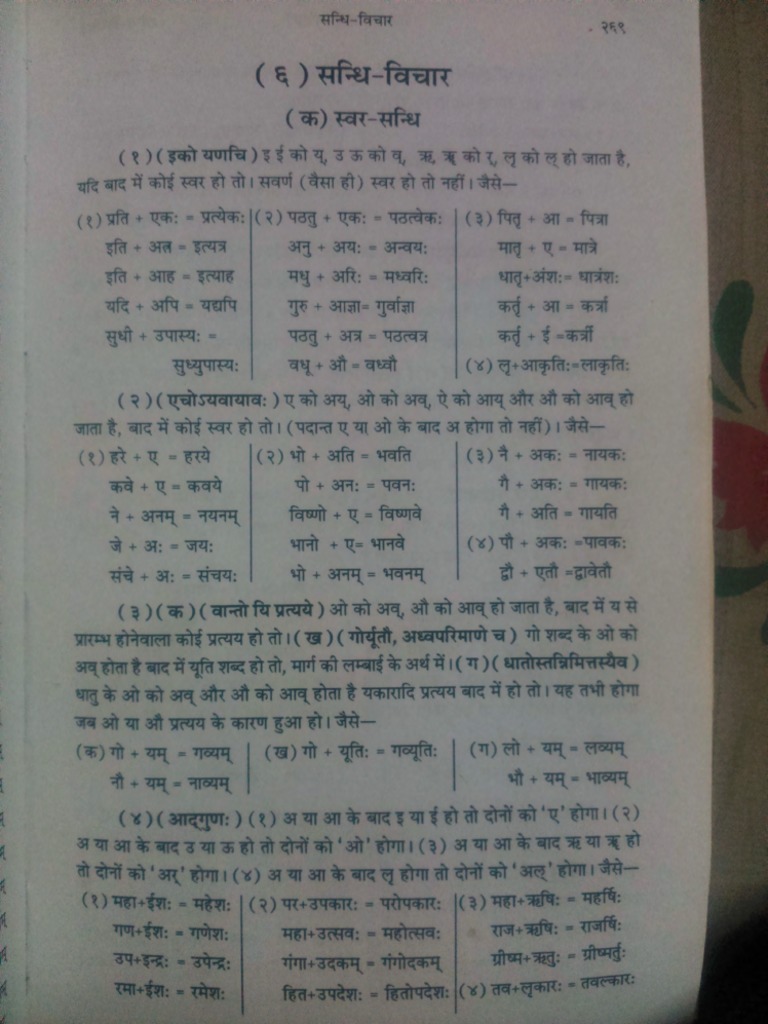 सन्धि-विचार
२६९
(६) सन्धि-विचार
(क) स्वर-सन्धि
(१) (इको यणचि) इ ई को य्, उ ऊ को व्, ऋ, ॠ को र्, लृ को ल् हो जाता है,
यदि बाद में कोई स्वर हो तो। सवर्ण (वैसा ही) स्वर हो तो नहीं। जैसे—
(१) प्रति + एकः = प्रत्येकः (२) पठतु + एकः = पठत्वेकः (३) पितृ + आ = पित्रा
इति + अत्र = इत्यत्र अनु + अयः = अन्वयः मातृ + ए = मात्रे
इति + आह = इत्याह मधु + अरिः = मध्वरिः धातृ+अंशः= धात्रंशः
यदि + अपि = यद्यपि गुरु + आज्ञा= गुर्वाज्ञा कर्तृ + आ = कर्त्रा
सुधी + उपास्यः = पठतु + अत्र = पठत्वत्र कर्तृ + ई =कर्त्री
सुध्युपास्यः वधू + औ = वध्वौ (४) लृ+आकृतिः=लाकृतिः
(२) (एचोऽयवायावः) ए को अय्, ओ को अव्, ऐ को आय् और औ को आव् हो
जाता है, बाद में कोई स्वर हो तो। (पदान्त ए या ओ के बाद अ होगा तो नहीं)। जैसे—
(१) हरे + ए = हरये (२) भो + अति = भवति (३) नै + अकः = नायकः
कवे + ए = कवये पो + अनः = पवनः गै + अकः = गायकः
ने + अनम् = नयनम् विष्णो + ए = विष्णवे गै + अति = गायति
जे + अः = जयः भानो + ए= भानवे (४) पौ + अकः =पावकः
संचे + अः = संचयः भो + अनम् = भवनम् द्वौ + एतौ =द्वावेतौ
(३) (क) (वान्तो यि प्रत्यये) ओ को अव्, औ को आव् हो जाता है, बाद में य से
प्रारम्भ होनेवाला कोई प्रत्यय हो तो। (ख) (गोर्यूतौ, अध्वपरिमाणे च) गो शब्द के ओ को
अव् होता है बाद में यूति शब्द हो तो, मार्ग की लम्बाई के अर्थ में। (ग) (धातोस्तन्निमित्तस्यैव)
धातु के ओ को अव् और औ को आव् होता है यकारादि प्रत्यय बाद में हो तो। यह तभी होगा
जब ओ या औ प्रत्यय के कारण हुआ हो। जैसे—
(क) गो + यम् = गव्यम् (ख) गो + यूतिः = गव्यूतिः (ग) लो + यम् = लव्यम्
नौ + यम् = नाव्यम् भौ + यम् = भाव्यम्
(४) (आद्गुणः) (१) अ या आ के बाद इ या ई हो तो दोनों को 'ए' होगा। (२)
अ या आ के बाद उ या ऊ हो तो दोनों को 'ओ' होगा। (३) अ या आ के बाद ऋ या ॠ हो
तो दोनों को 'अर्' होगा। (४) अ या आ के बाद लृ होगा तो दोनों को 'अल्' होगा। जैसे—
(१) महा+ईशः = महेशः (२) पर+उपकारः = परोपकारः (३) महा+ऋषिः = महर्षिः
गण+ईशः = गणेशः महा+उत्सवः = महोत्सवः राज+ऋषिः = राजर्षिः
उप+इन्द्रः = उपेन्द्रः गंगा+उदकम् = गंगोदकम् ग्रीष्म+ऋतुः = ग्रीष्मर्तुः
रमा+ईशः = रमेशः हित+उपदेशः = हितोपदेशः (४) तव+लृकारः = तवल्कारः